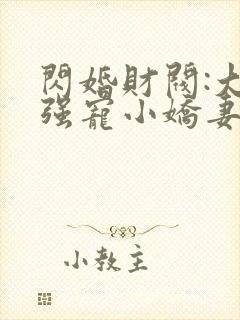 閃婚財閥:大
強寵小嬌妻
小教主